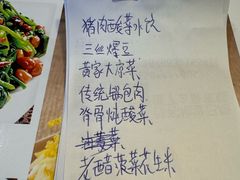 猪肉酸菜水饺
三丝爆豆
黄家大凉菜
传统锅包肉
脊骨炖酸菜
老醋菠菜花生米